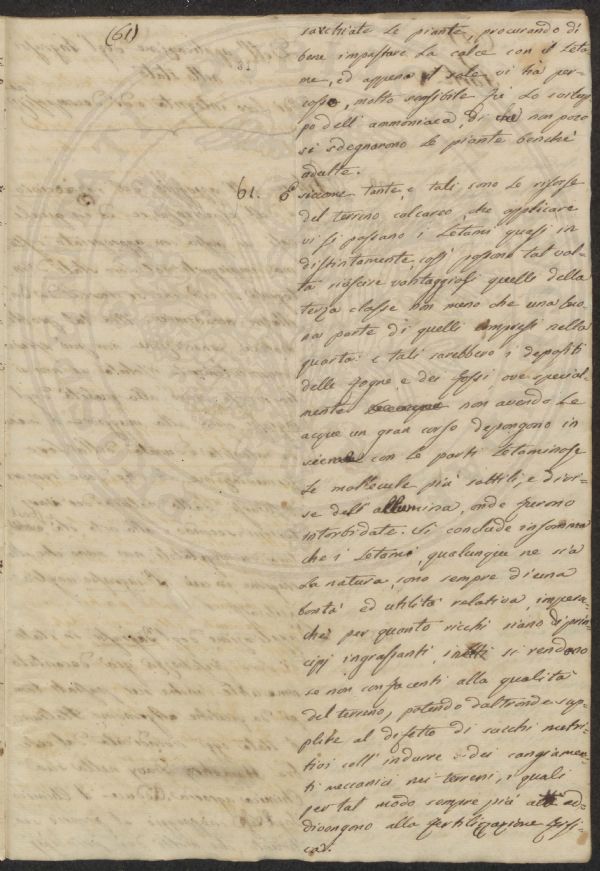 (61)
sarchiate le piante, procurando di
bene impastare la calce con il leta
me, ed appena il sole vi ha per
cosso, molto sensibile fu lo svilup
po dell'ammoniaca, di che non poco
si sdegnarono le piante benchè
adulte.
61. E siccome tante, e tali sono le risorse
del terreno calcareo, che applicare
vi si possano i letami quasi in
distintamente, così possono tal vol
ta riescire vantaggiosi quelli della
terza classe non meno che una buo
na parte di quelli compresi nella
quarta: e tali sarebbero i depositi
delle fogne e dei fossi, ove special-
mente non avendo le
acque un gran corso depongono in
sieme con le parti letaminose
le mollecule più sottili, e divi-
se dell'allumina, onde furono
intorbidate. Si conclude insomma
che i letami, qualunque ne sia
la natura, sono sempre d'una
bontà ed utilità relativa, impera
chè per quanto ricchi siano di prin
cipj ingrassanti, inutili si rendono
se non confacenti alla qualità
del terreno, potendo d'altronde sup-
plire al difetto di succhi nutri
tivi coll'indurre dei cangiamen-
ti meccanici nei terreni, i quali
per tal modo sempre più ad-
divengono alla fertilizzazione effi-
caci.